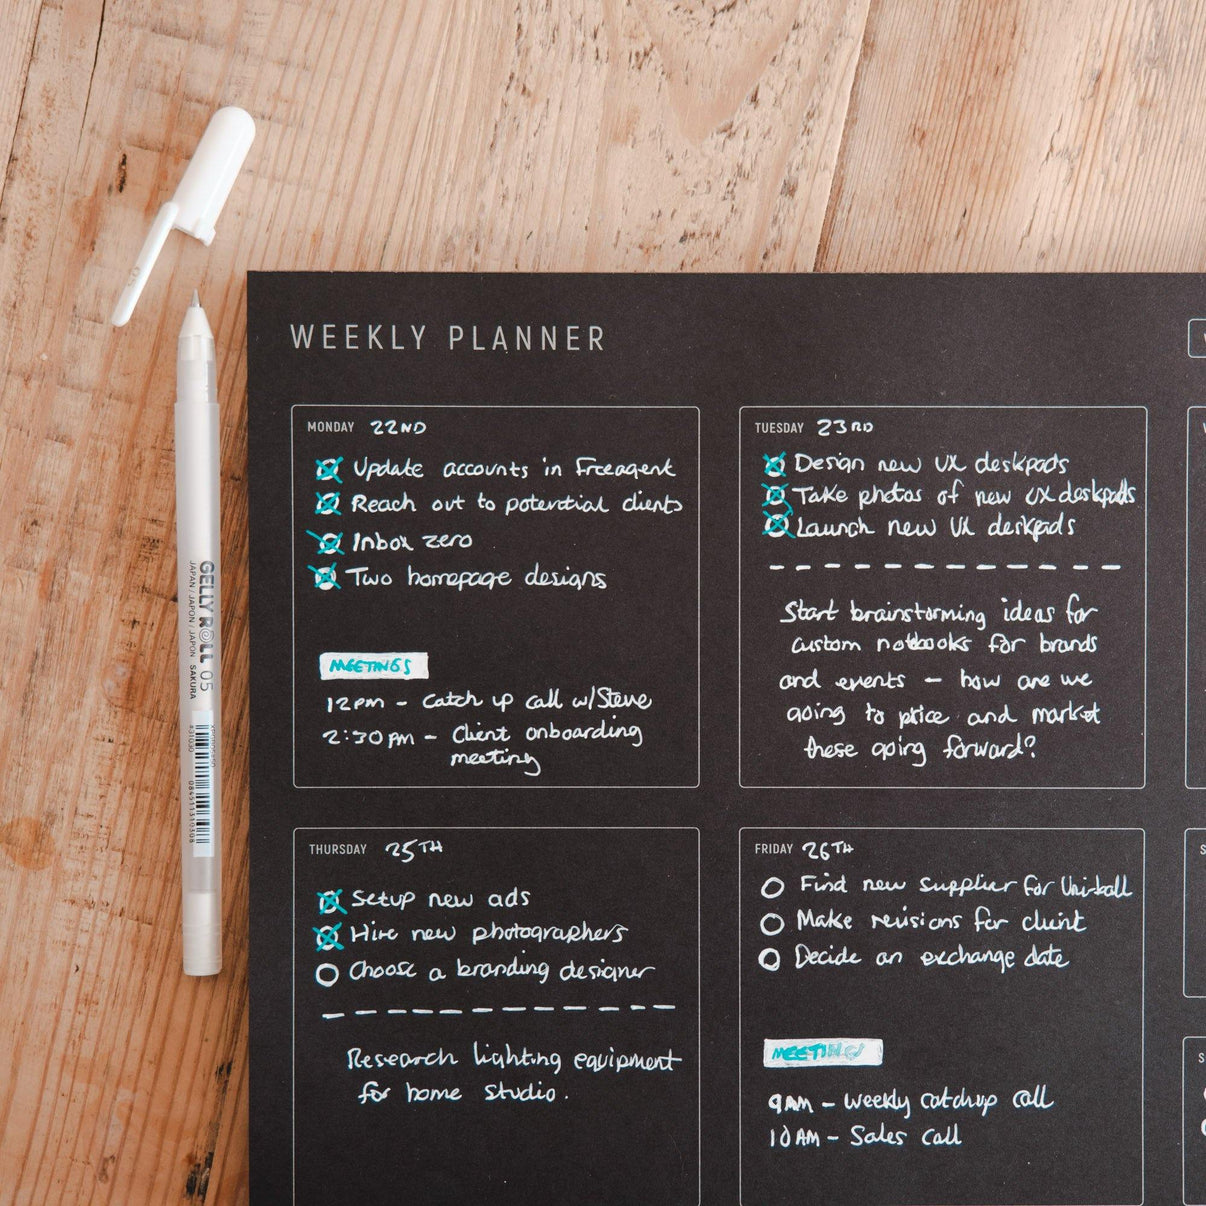 WEEKLY PLANNER
MONDAY 22ND
Update accounts in Freeagent
Reach out to potential clients
Inbox zero
Two homepage designs
MEETINGS
12pm - Catch up call w/Steve
2:30pm - Client onboarding
meeting
TUESDAY 23RD
Design new UX deskpads
Take photos of new UX deskpads
Launch new UX deskpads
Start brainstorming ideas for
custom notebooks for brands
and events - how are we
going to price and market
these going forward?
THURSDAY 25TH
Setup new ads
Hire new photographers
Choose a branding designer
Research lighting equipment
for home studio.
FRIDAY 26TH
Find new supplier for Uni-ball
Make revisions for client
Decide an exchange date
MEETINGS
9AM - Weekly catchup call
10AM - Sales call
GELLY ROLL 05
JAPAN / JAPON / JAPON SAKURA
05